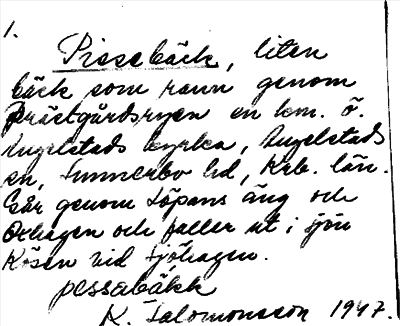 1.
Pissebäck, liten
bäck som rann genom
Prästgårdsryen en km. ö.
Angelstads kyrka, Angelstads
sn, Sunnerbo hd, Krb. län.
Går genom Löpans äng och
Oxhagen och faller ut i sjön
Kösen vid Sjöhagen.
pessabäkk
K. Salomonsson 1947.